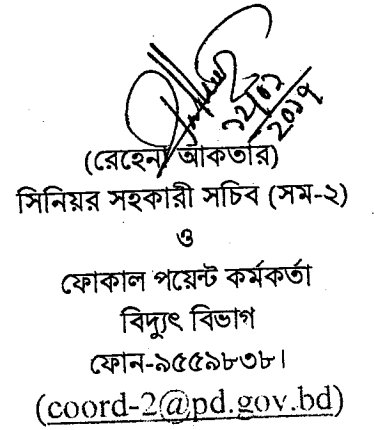 ১২/০১
২০১৭
(রেহেনা আকতার)
সিনিয়র সহকারী সচিব (সম-২)
ও
ফোকাল পয়েন্ট কর্মকর্তা
বিদ্যুৎ বিভাগ
ফোন-৯৫৫৯৮৩৮।
(coord-2@pd.gov.bd)